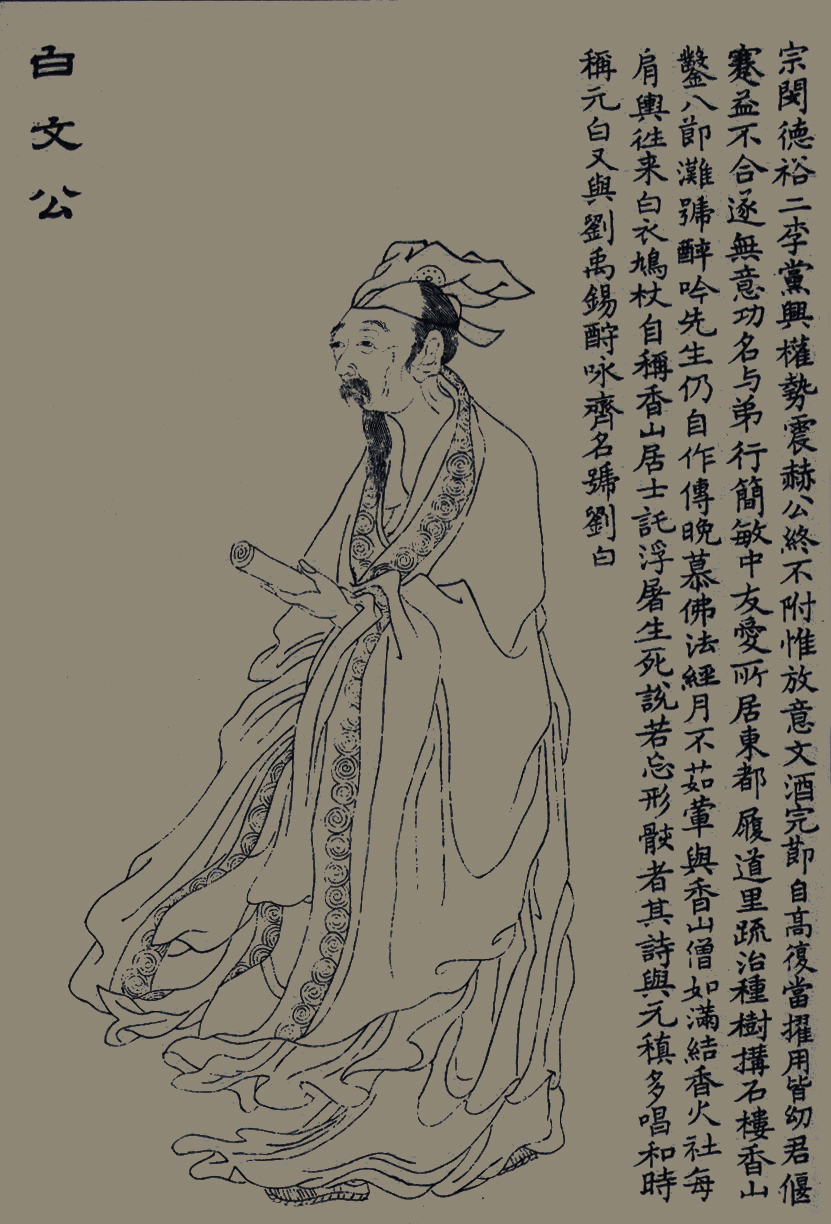 宗閔德裕二李黨興權勢震赫公終不附惟放意文酒完節自高復當擢用皆幼君偃
蹇益不合逐無意功名与弟行簡敏中友愛所居東都履道里疏治種樹搆石樓香山
鑿八節灘號醉吟先生仍自作傳晚慕佛法經月不茹葷與香山僧如滿結香火社每
肩輿徃来白衣鳩杖自稱香山居士託浮屠生死說若忘形骸者其詩與元稹多唱和時
稱元白又與劉禹錫酧咏齊名號劉白
白文公